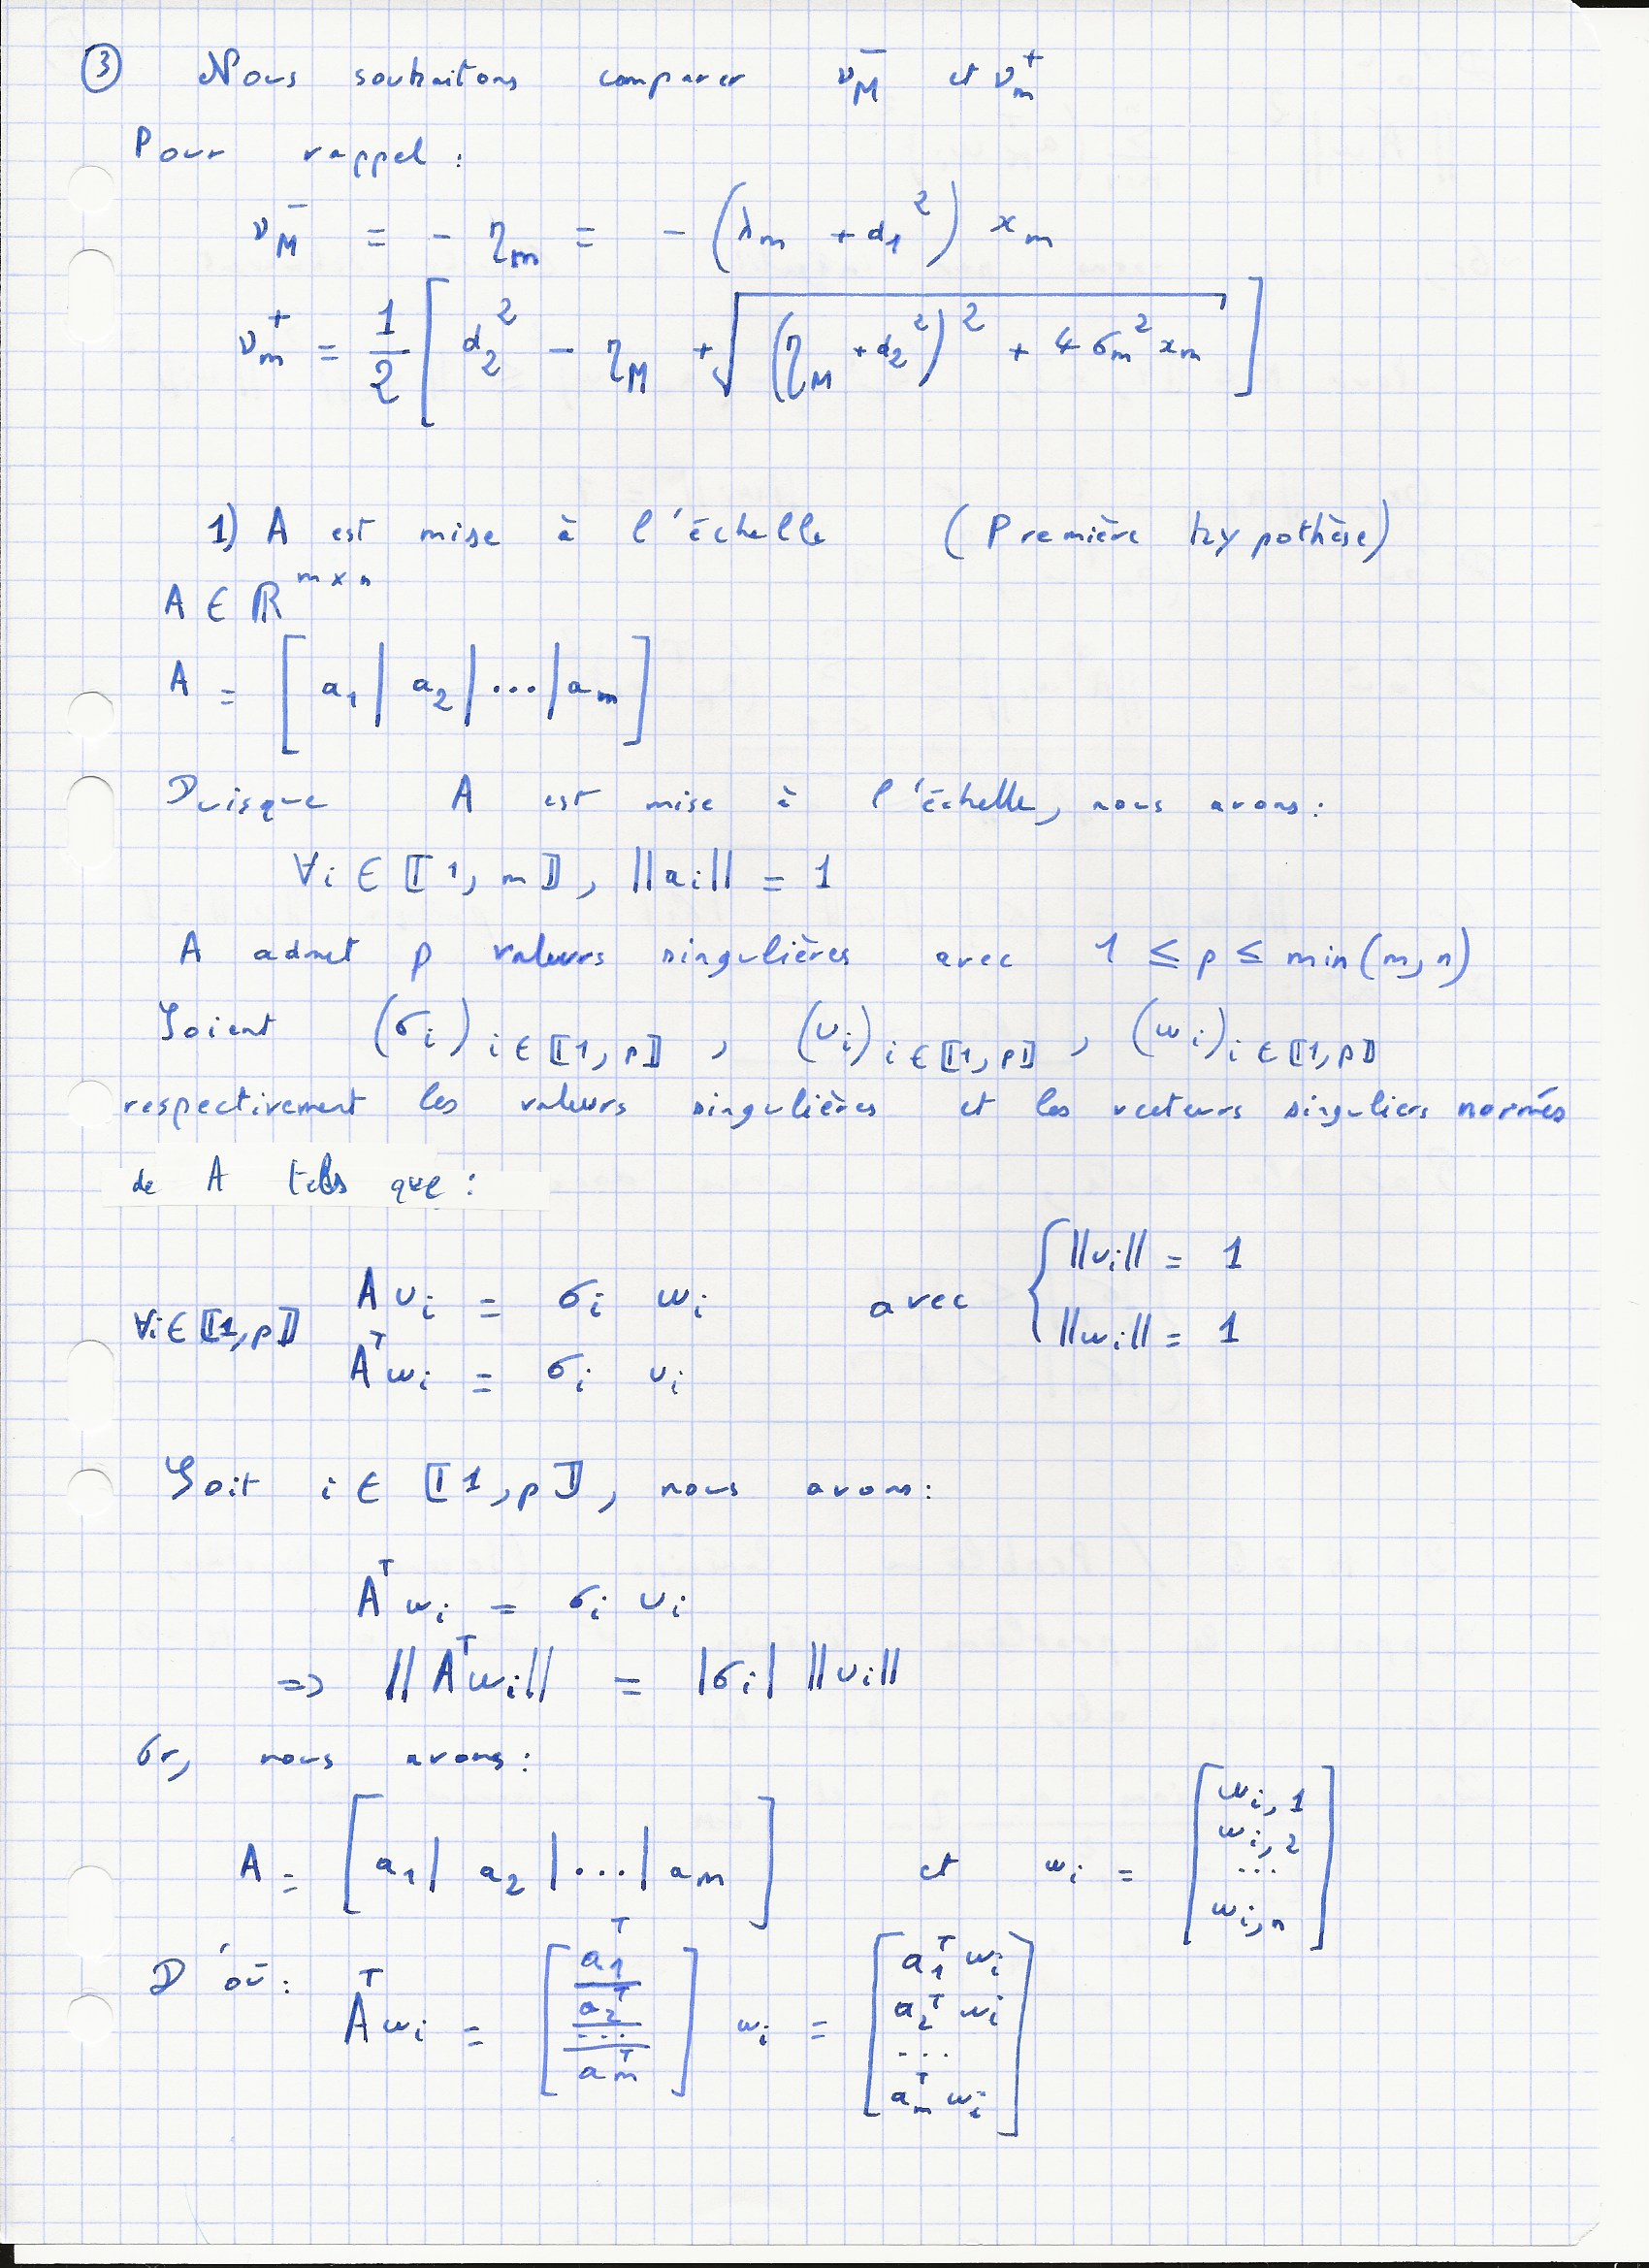 ③ Nous souhaitons comparer ν_M^- et ν_m^+
Pour rappel :
ν_M^- = - η_m = - (λ_m + d_1^2) x_m
ν_m^+ = 1/2 [ d_2^2 - η_M + √( (η_M + d_2^2)^2 + 4 σ_m^2 x_m ) ]
1) A est mise à l'échelle (Première hypothèse)
A ∈ ℝ^{m×n}
A = [ a_1 | a_2 | ... | a_m ]
Puisque A est mise à l'échelle, nous avons :
∀i ∈ ⟦1, m⟧, ||a_i|| = 1
A admet p valeurs singulières avec 1 ≤ p ≤ min(m, n)
Soient (σ_i)_{i ∈ ⟦1, p⟧} , (υ_i)_{i ∈ ⟦1, p⟧} , (w_i)_{i ∈ ⟦1, p⟧}
respectivement les valeurs singulières et les vecteurs singuliers normés
de A tels que :
∀i ∈ ⟦1, p⟧ A υ_i = σ_i w_i avec { ||υ_i|| = 1
A^T w_i = σ_i υ_i ||w_i|| = 1
Soit i ∈ ⟦1, p⟧, nous avons :
A^T w_i = σ_i υ_i
=> || A^T w_i || = |σ_i| ||υ_i||
Or, nous avons :
A = [ a_1 | a_2 | ... | a_m ] et w_i = [ w_{i,1} w_{i,2} ... w_{i,n} ]
D'où : A^T w_i = [ a_1^T a_2^T ... a_m^T ] w_i = [ a_1^T w_i a_2^T w_i ... a_m^T w_i ]